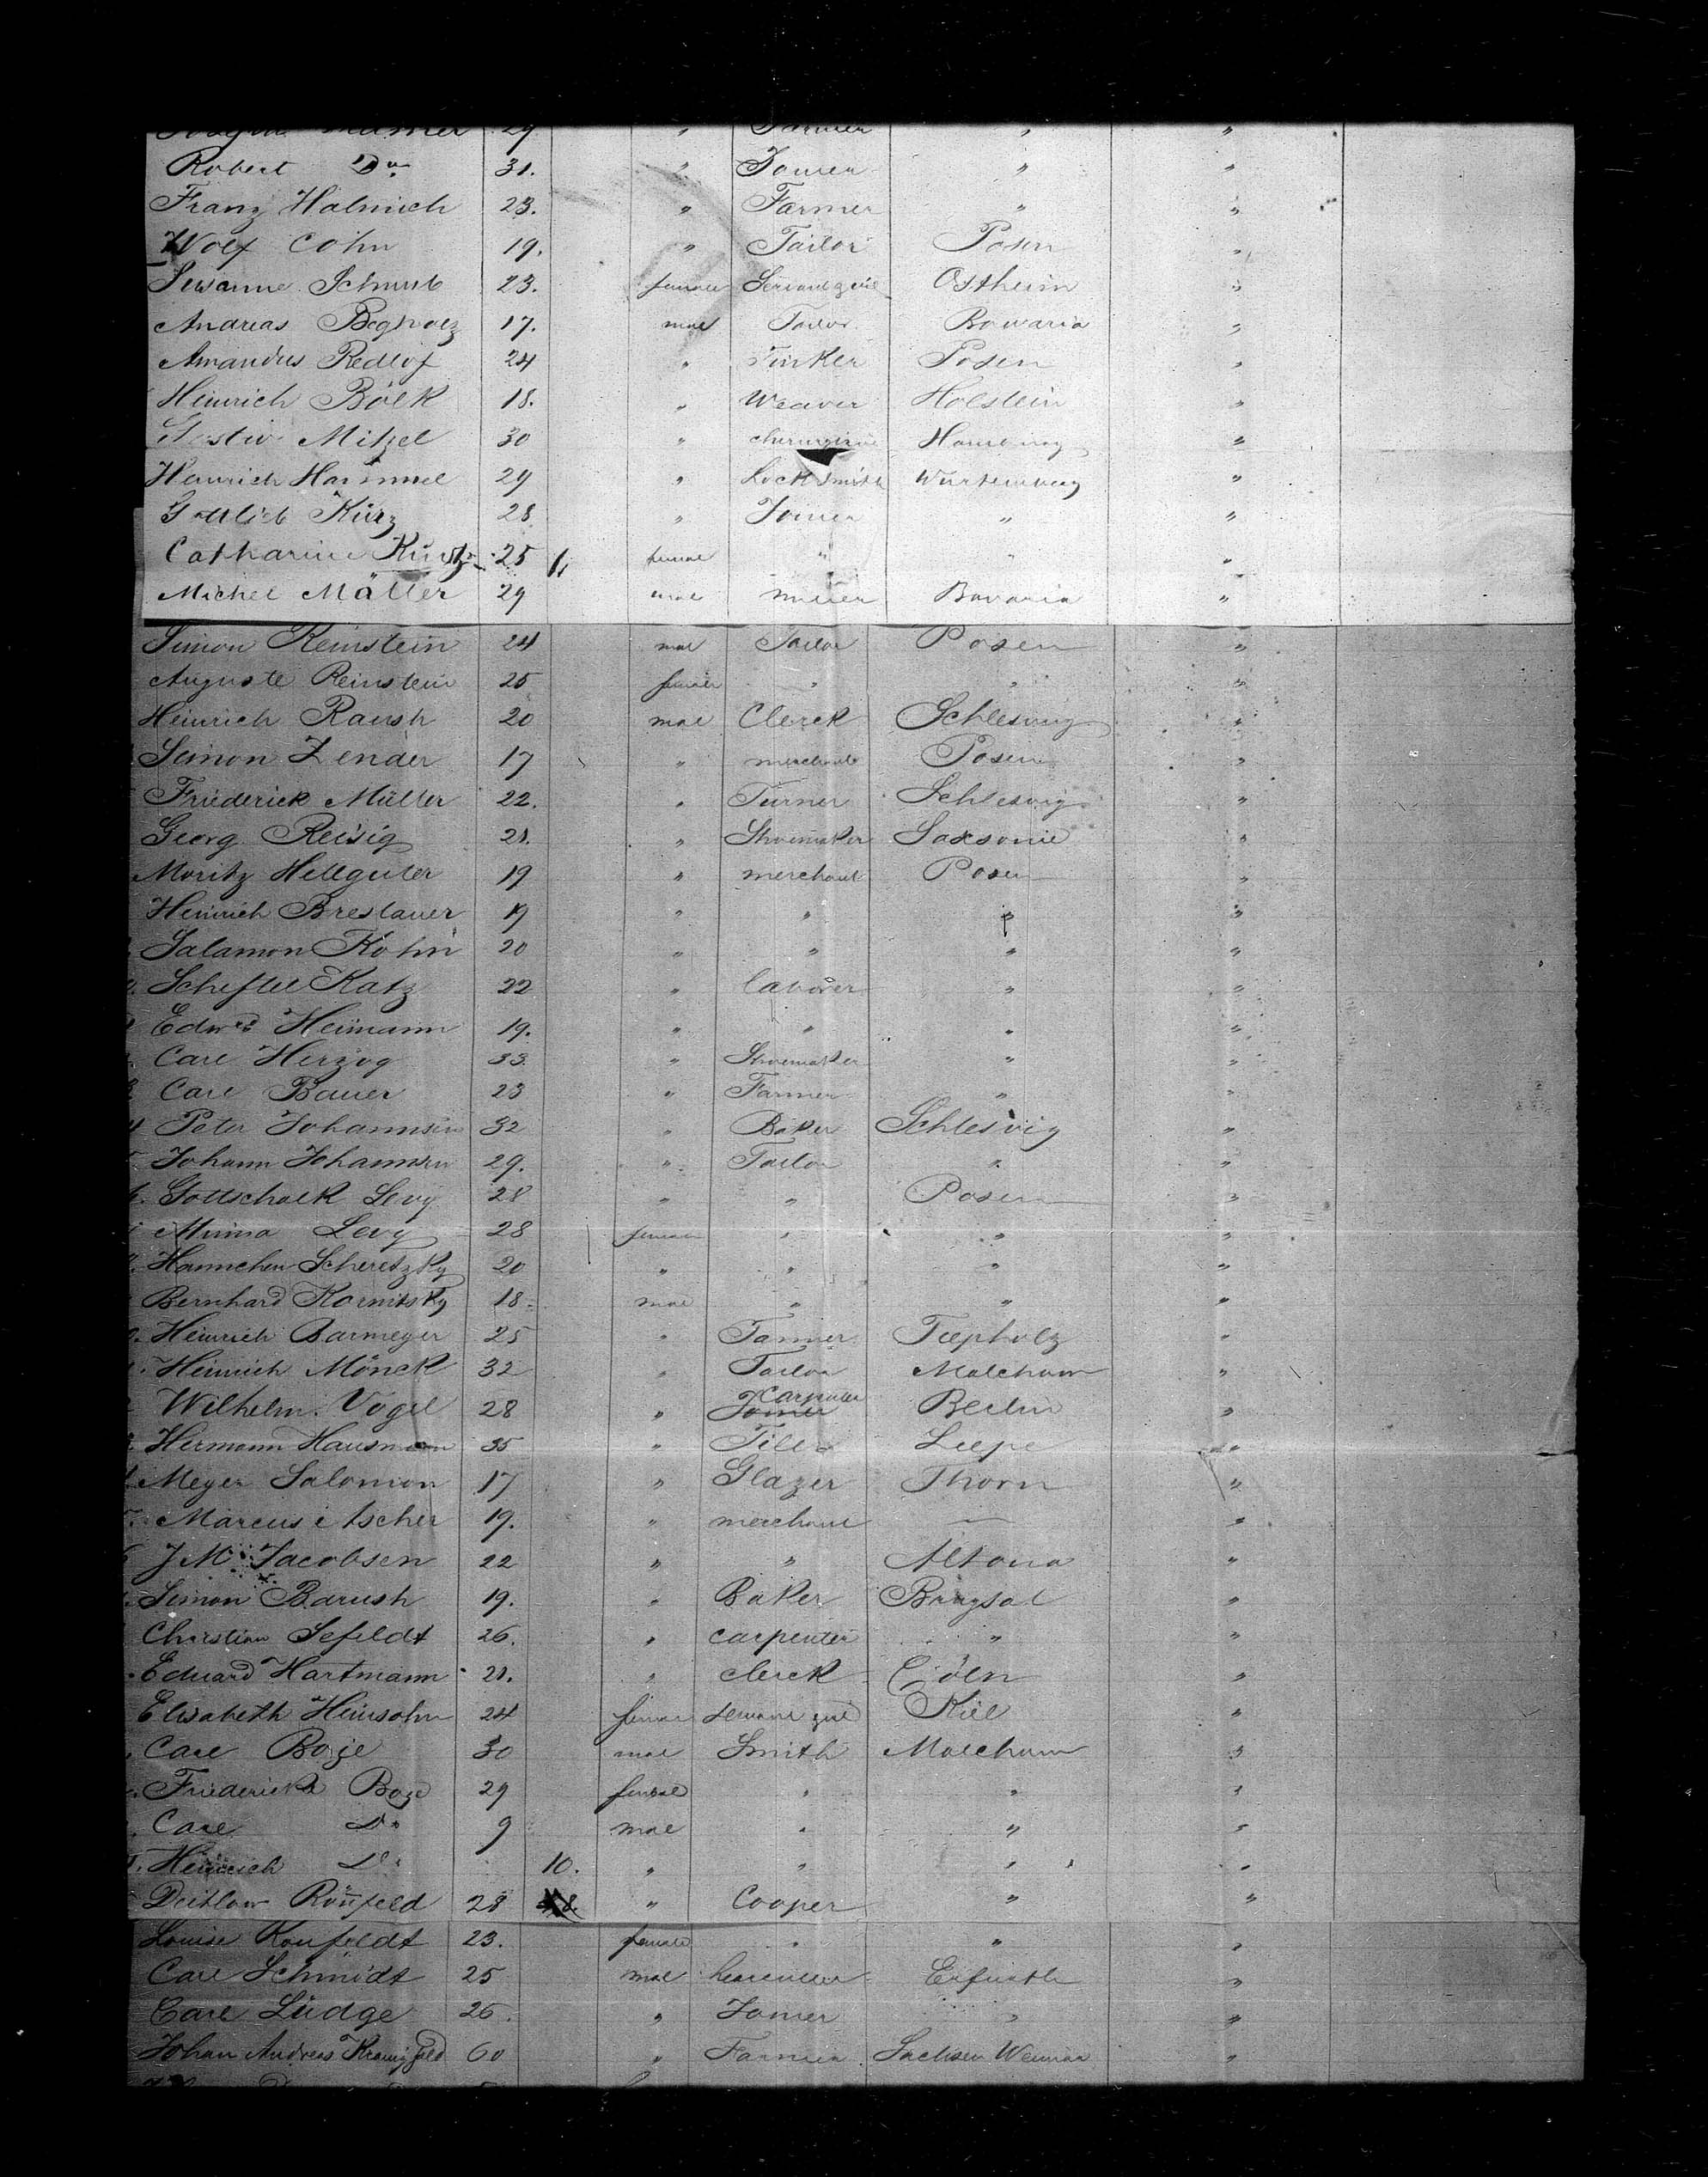 29 " Farmer " "
Robert Do 31. " Joiner " "
Franz Halmich 23. " Farmer " "
Wolf Cohn 19. " Tailor Posen "
Susanne Schmub 23. female Servant girl Ostheim "
Andreas 17. mal Tailor Bawaria "
Amandus Redlof 24 " Tinker Posen "
Heinrich Böek 18. " Weaver Holstein "
Mitzel 30 " Hamburg "
Heinrich Hammel 29 " Locksmith Würtemberg "
Gottlieb Kürz 28 " Joiner " "
Catharine 25 female " " "
Michel Mäller 29 mal Bavaria "
Simon Reinstein 24 mal Tailor Posen "
Auguste Reinstein 25 female " " "
Heinrich Raush 20 mal Clerck Schleswig "
Simon Zender 17 " merchant Posen "
Friederick Müller 22. " Turner Schleswig "
Georg Reisig 21. " Shoemaker Saxsonie "
Moritz Hellguter 19 " merchant Posen "
Heinrich Breslauer 19 " " " "
Salamon Kohn 20 " " " "
Scheftel Katz 22 " laborer " "
Edwd Heimann 19. " " " "
Carl Herzog 33. " Shoemaker " "
Carl Bauer 23 " Farmer " "
Peter Johannsen 32 " Baker Schlesvig "
Johann Johannsen 29. " Tailor " "
Gottschalk Levy 28 " " Posen "
Minna Levy 28 female " " "
Hannchen Scheretzky 20 " " " "
Bernhard Kornitsky 18 mal " " "
Heinrich Barmeyer 25 " Tanner "
Heinrich Mönck 32 " Tailor Malchow "
Carpenter
Wilhelm Vogel 28 " Joiner Berlin "
Hermann Hausmann 35 " Tiler "
Meyer Salomon 17 " Glazer Thorn "
Marcus Ascher 19. " merchant — "
J M Jacobsen 22 " " Altona "
Simon Barush 19. " Baker "
Christian Sefeldt 26. " carpenter " "
Eduard Hartmann 21. " clerck Cöln "
Elisabeth Heinsohn 24 female servant girl Kiel "
Carl Boze 30 mal Smith Malchow "
Friedericke Boze 29 female " " "
Carl Do 9 mal " " "
Heinrich Do 10. " " " "
Deitlow Ronfeld 28 " Cooper " "
Louise Ronfeldt 23. female " " "
Carl Schmidt 25 mal Erfurth "
Carl Lüdge 26. " Joiner " "
Johan Andreas 60 " Farmer Sachsen Weimar "